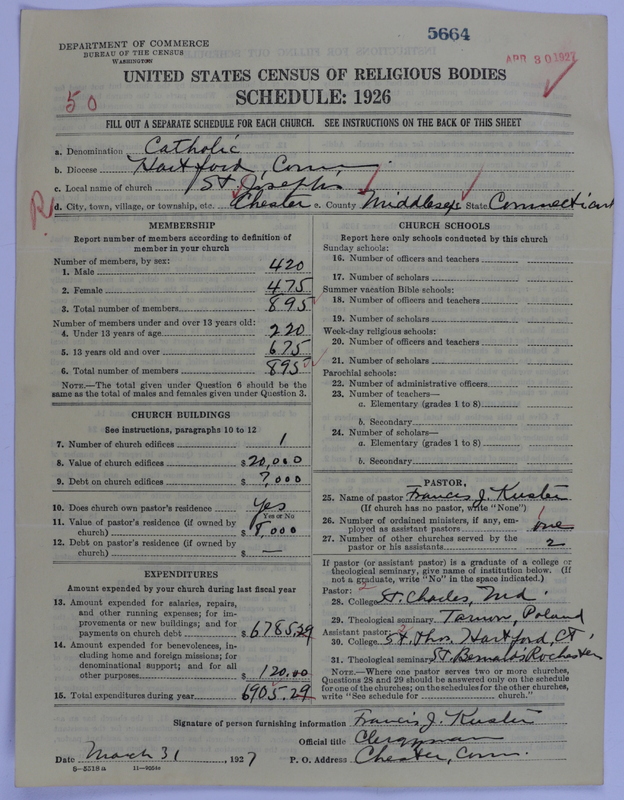 5664
APR 30 1927
DEPARTMENT OF COMMERCE
BUREAU OF THE CENSUS
WASHINGTON
UNITED STATES CENSUS OF RELIGIOUS BODIES
SCHEDULE: 1926
50
FILL OUT A SEPARATE SCHEDULE FOR EACH CHURCH. SEE INSTRUCTIONS ON THE BACK OF THIS SHEET
a. Denomination Catholic
b. Diocese Hartford, Conn.
c. Local name of church St Joseph's
d. City, town, village, or township, etc. Chester e. County Middlesex State Connecticut
MEMBERSHIP
Report number of members according to definition of
member in your church
Number of members, by sex:
1. Male 420
2. Female 475
3. Total number of members 895
Number of members under and over 13 years old:
4. Under 13 years of age 220
5. 13 years old and over 675
6. Total number of members 895
NOTE.—The total given under Question 6 should be the
same as the total of males and females given under Question 3.
CHURCH BUILDINGS
See instructions, paragraphs 10 to 12
7. Number of church edifices 1
8. Value of church edifices $20,000
9. Debt on church edifices $7,000
10. Does church own pastor's residence Yes
Yes or No
11. Value of pastor's residence (if owned by
church) $8,000
12. Debt on pastor's residence (if owned by
church) $ —
EXPENDITURES
Amount expended by your church during last fiscal year
13. Amount expended for salaries, repairs,
and other running expenses; for im-
provements or new buildings; and for
payments on church debt $6785.29
14. Amount expended for benevolences, in-
cluding home and foreign missions; for
denominational support; and for all
other purposes $120.00
15. Total expenditures during year 6905.29
CHURCH SCHOOLS
Report here only schools conducted by this church
Sunday schools:
16. Number of officers and teachers
17. Number of scholars
Summer vacation Bible schools:
18. Number of officers and teachers
19. Number of scholars
Week-day religious schools:
20. Number of officers and teachers
21. Number of scholars
Parochial schools:
22. Number of administrative officers
23. Number of teachers—
a. Elementary (grades 1 to 8)
b. Secondary
24. Number of scholars—
a. Elementary (grades 1 to 8)
b. Secondary
PASTOR
25. Name of pastor Francis J. Kuster
(If church has no pastor, write "None")
26. Number of ordained ministers, if any, em-
ployed as assistant pastors one
27. Number of other churches served by the
pastor or his assistants 2
If pastor (or assistant pastor) is a graduate of a college or
theological seminary, give name of institution below. (If
not a graduate, write "No" in the space indicated.)
Pastor: 2
28. College St. Charles, Md.
29. Theological seminary Tarnow, Poland
Assistant pastor: 2
30. College St. Thos. Hartford, Ct.
31. Theological seminary St Bernard's Rochester
NOTE.—Where one pastor serves two or more churches,
Questions 28 and 29 should be answered only on the schedule
for one of the churches; on the schedules for the other churches,
write "See schedule for church."
Signature of person furnishing information Francis J. Kuster
Official title Clergyman
Date March 31, 1927 P. O. Address Chester, Conn.
8—5518a 11—9051a